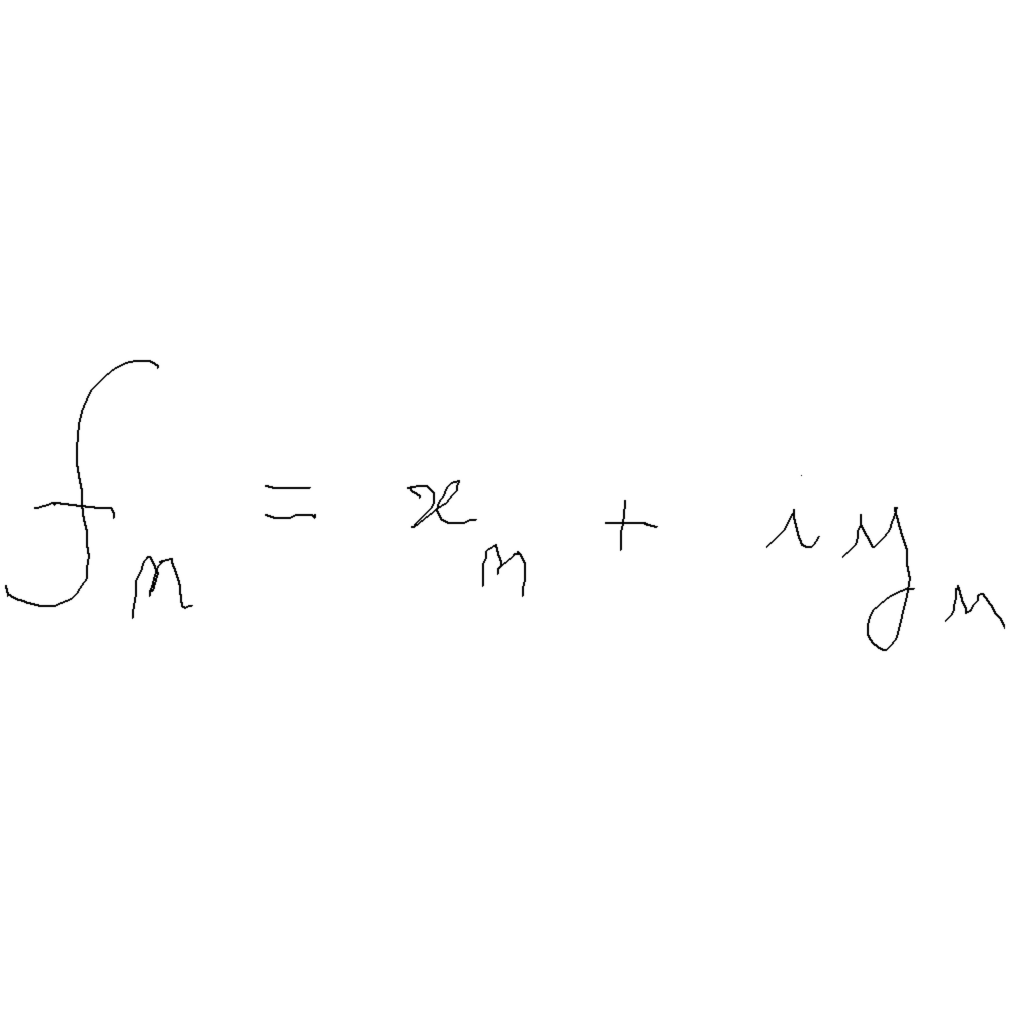 $f_n = x_n + i y_n$